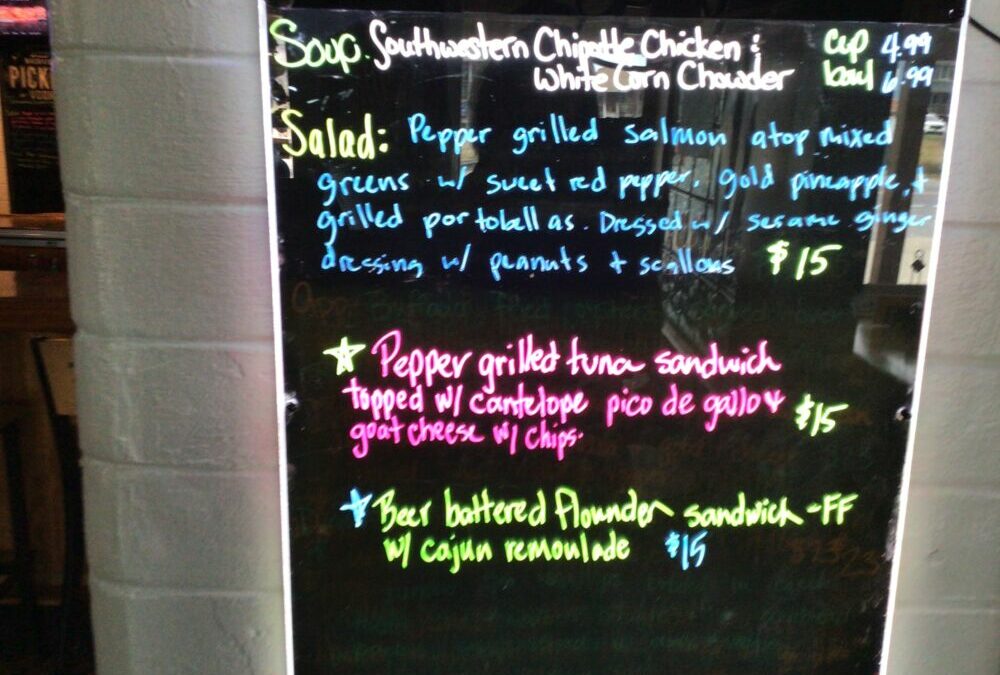 PICK
Soup. Southwestern Chipotle Chicken : cup 4.99
White Corn Chowder bowl 6.99
Salad: Pepper grilled salmon atop mixed
greens w/ sweet red pepper, gold pineapple, +
grilled portobellas. Dressed w/ sesame ginger
dressing w/ peanuts + scallous $15
Pepper grilled tuna sandwich
topped w/ cantelope pico de gallo +
goat cheese w/ chips. $15
Beer battered flounder sandwich - FF
w/ cajun remoulade $15